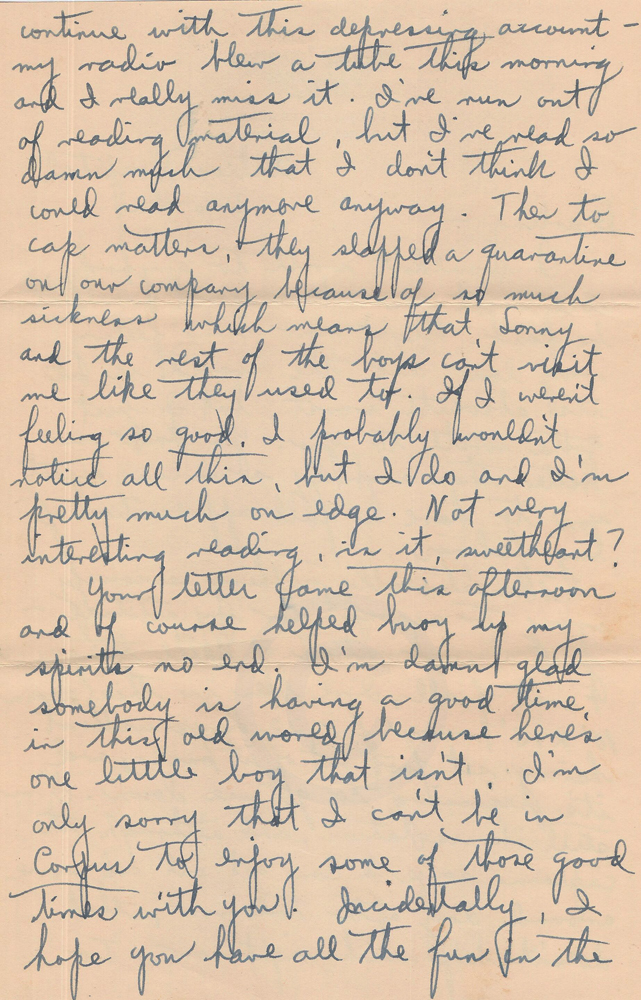 continue with this depressing account -
my radio blew a tube this morning
and I really miss it. I've run out
of reading material, but I've read so
damn much that I don't think I
could read anymore anyway. Then to
cap matters, they slapped a quarantine
on our company because of so much
sickness which means that Sonny
and the rest of the boys can't visit
me like they used to. If I weren't
feeling so good, I probably wouldn't
notice all this, but I do and I'm
pretty much on edge. Not very
interesting reading, is it, sweetheart?
Your letter came this afternoon
and of course helped buoy up my
spirits no end. I'm damn glad
somebody is having a good time
in this old world because here's
one litttle boy that isn't. I'm
only sorry that I can't be in
Corpus to enjoy some of those good
times with you. Incidentally, I
hope you have all the fun in the